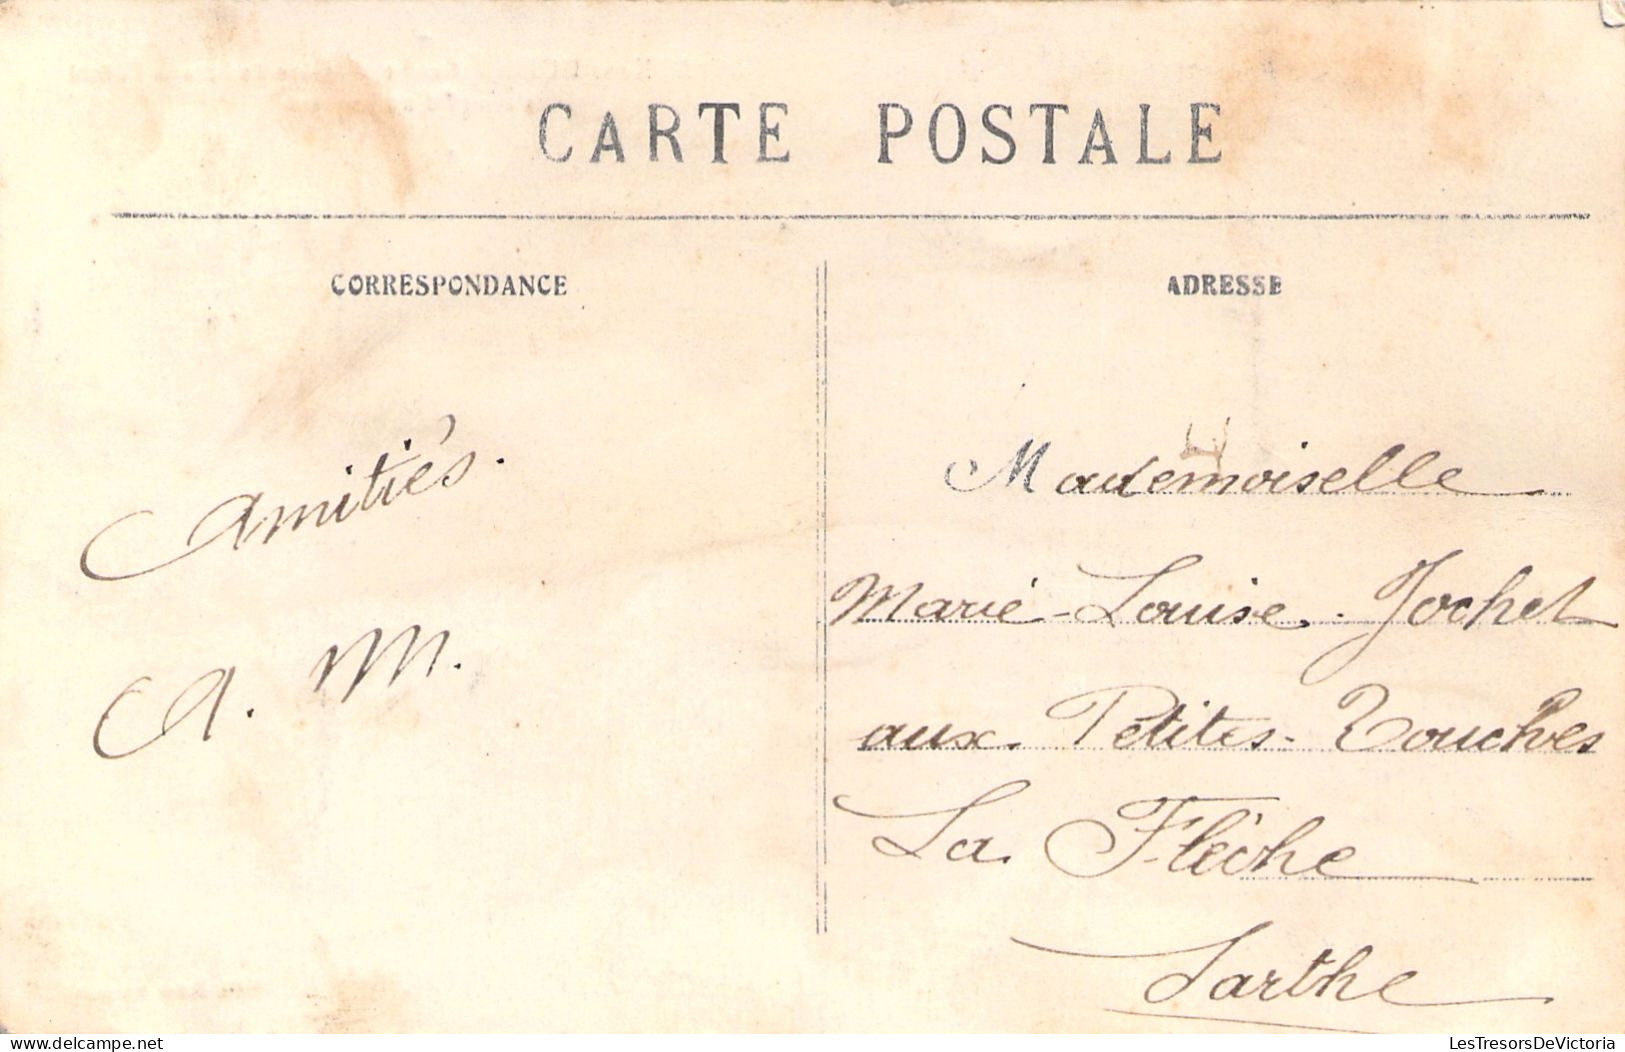 CARTE POSTALE
CORRESPONDANCE
Amitiés.
A. M.
ADRESSE
Mademoiselle
Marie-Louise Jochet
aux Petites-Touches
La Flèche
Sarthe
https://www.delcampe.net
LesTresorsDeVictoria